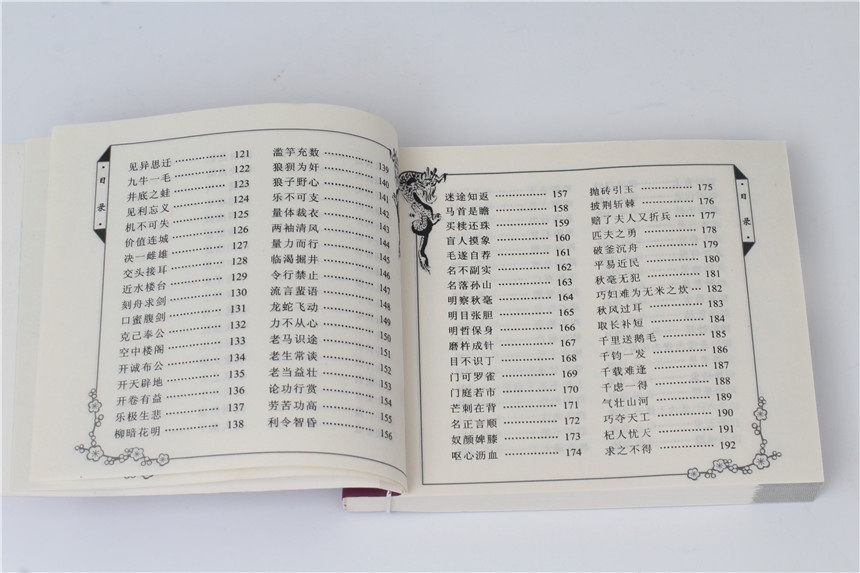 目录
见异思迁 ………… 121
九牛一毛 ………… 122
井底之蛙 ………… 123
见利忘义 ………… 124
机不可失 ………… 125
价值连城 ………… 126
决一雌雄 ………… 127
交头接耳 ………… 128
近水楼台 ………… 129
刻舟求剑 ………… 130
口蜜腹剑 ………… 131
克己奉公 ………… 132
空中楼阁 ………… 133
开诚布公 ………… 134
开天辟地 ………… 135
开卷有益 ………… 136
乐极生悲 ………… 137
柳暗花明 ………… 138
滥竽充数 ………… 139
狼狈为奸 ………… 140
狼子野心 ………… 141
乐不可支 ………… 142
量体裁衣 ………… 143
两袖清风 ………… 144
量力而行 ………… 145
临渴掘井 ………… 146
令行禁止 ………… 147
流言蜚语 ………… 148
龙蛇飞动 ………… 149
力不从心 ………… 150
老马识途 ………… 151
老生常谈 ………… 152
老当益壮 ………… 153
论功行赏 ………… 154
劳苦功高 ………… 155
利令智昏 ………… 156
迷途知返 ………… 157
马首是瞻 ………… 158
买椟还珠 ………… 159
盲人摸象 ………… 160
毛遂自荐 ………… 161
名不副实 ………… 162
名落孙山 ………… 163
明察秋毫 ………… 164
明目张胆 ………… 165
明哲保身 ………… 166
磨杵成针 ………… 167
目不识丁 ………… 168
门可罗雀 ………… 169
门庭若市 ………… 170
芒刺在背 ………… 171
名正言顺 ………… 172
奴颜婢膝 ………… 173
呕心沥血 ………… 174
抛砖引玉 ………… 175
披荆斩棘 ………… 176
赔了夫人又折兵 …… 177
匹夫之勇 ………… 178
破釜沉舟 ………… 179
平易近民 ………… 180
秋毫无犯 ………… 181
巧妇难为无米之炊 … 182
秋风过耳 ………… 183
取长补短 ………… 184
千里送鹅毛 ……… 185
千钧一发 ………… 186
千载难逢 ………… 187
千虑一得 ………… 188
气壮山河 ………… 189
巧夺天工 ………… 190
杞人忧天 ………… 191
求之不得 ………… 192
目录